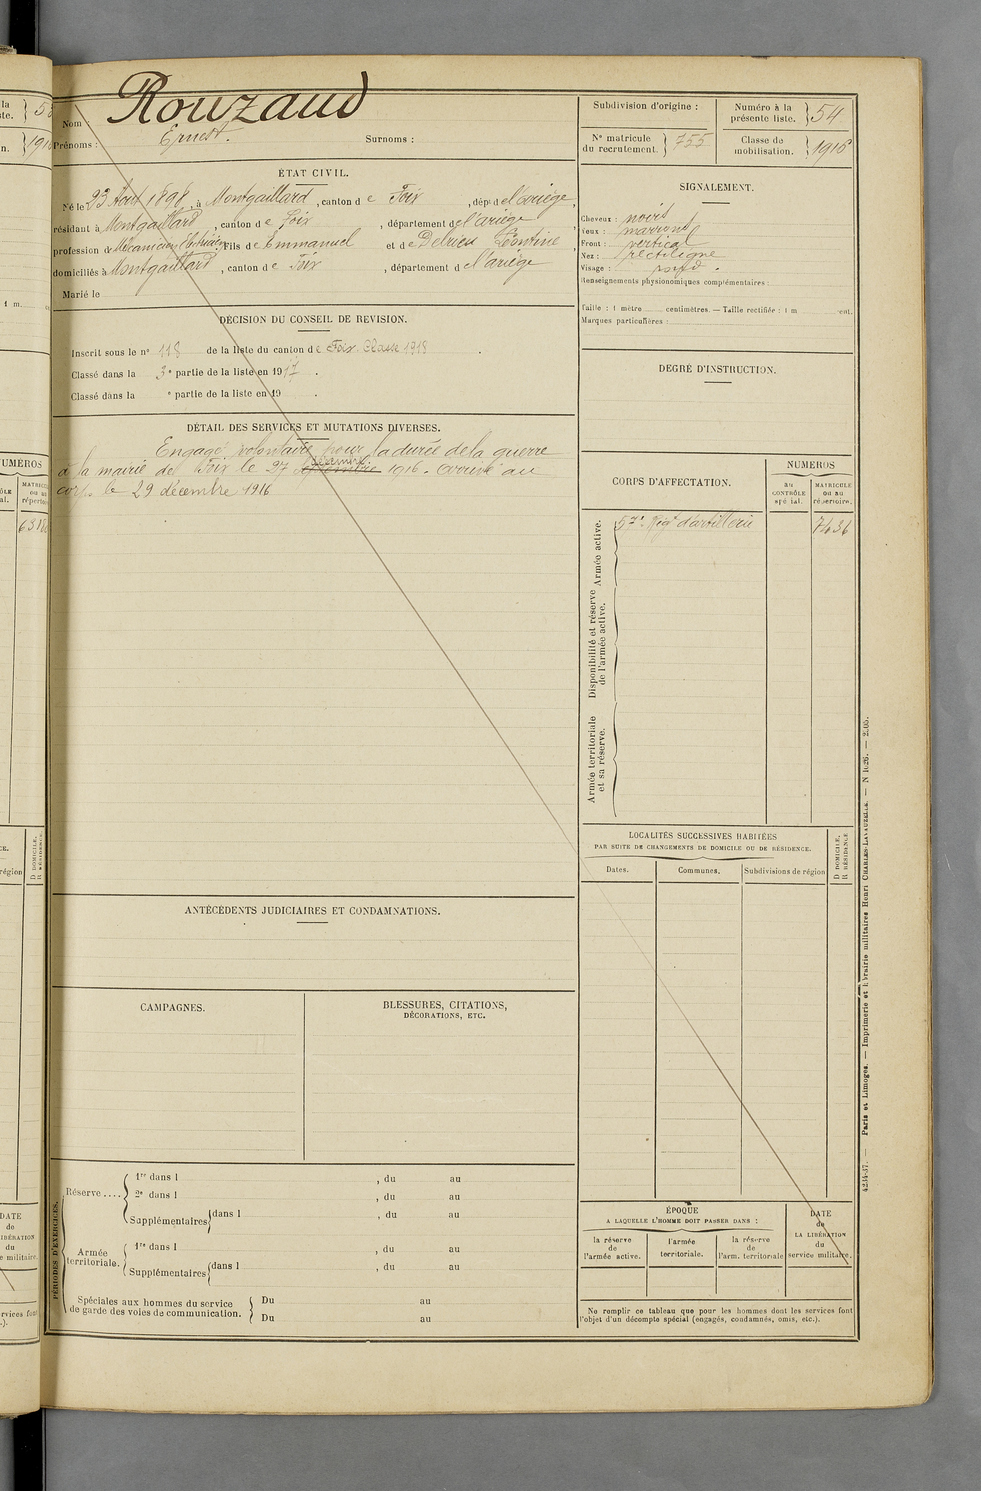 Nom : Rouzaud
Prénoms : Ernest. Surnoms :
ÉTAT CIVIL.
Né le 23 Août 1898, à Montgaillard, canton de Foix, dépt de l'ariège,
résidant à Montgaillard, canton de Foix, département de l'ariège,
profession de Mécanicien Fils de Emmanuel et de Delrieu Léontine,
domiciliés à Montgaillard, canton de Foix, département de l'ariège
Marié le
DÉCISION DU CONSEIL DE REVISION.
Inscrit sous le n° 118 de la liste du canton de Foix. Classe 1918.
Classé dans la 3e partie de la liste en 1917.
Classé dans la e partie de la liste en 19 .
DÉTAIL DES SERVICES ET MUTATIONS DIVERSES.
Engagé volontaire pour la durée de la guerre
décembre
à la mairie de Foix le 27 1916. Arrivé au
corps le 29 décembre 1916
ANTÉCÉDENTS JUDICIAIRES ET CONDAMNATIONS.
CAMPAGNES.
BLESSURES, CITATIONS,
DÉCORATIONS, ETC.
PÉRIODES D'EXERCICES.
Réserve ....
1re dans l , du au
2e dans l , du au
Supplémentaires dans l , du au
Armée territoriale.
1re dans l , du au
Supplémentaires dans l , du au
Spéciales aux hommes du service
de garde des voies de communication.
Du au
Du au
Subdivision d'origine :
Numéro à la présente liste. 54
N° matricule du recrutement. 755
Classe de mobilisation. 1916
SIGNALEMENT.
Cheveux : noirs
Yeux : marrons
Front : vertical
Nez : rectiligne
Visage : rond.
Renseignements physionomiques complémentaires :
Taille : 1 mètre centimètres. — Taille rectifiée : 1 m cent.
Marques particulières :
DEGRÉ D'INSTRUCTION.
CORPS D'AFFECTATION.
NUMÉROS
au CONTRÔLE spécial.
MATRICULE ou au répertoire.
Armée active.
57e Régt d'artillerie 7436
Disponibilité et réserve de l'armée active.
Armée territoriale et sa réserve.
LOCALITÉS SUCCESSIVES HABITÉES
PAR SUITE DE CHANGEMENTS DE DOMICILE OU DE RÉSIDENCE.
Dates.
Communes.
Subdivisions de région
D DOMICILE.
R RÉSIDENCE
ÉPOQUE
A LAQUELLE L'HOMME DOIT PASSER DANS :
la réserve de l'armée active.
l'armée territoriale.
la réserve de l'arm. territoriale
DATE de LA LIBÉRATION du service militaire.
Ne remplir ce tableau que pour les hommes dont les services font
l'objet d'un décompte spécial (engagés, condamnés, omis, etc.).
Paris et Limoges. — Imprimerie et librairie militaires Henri CHARLES-LAVAUZELLE.